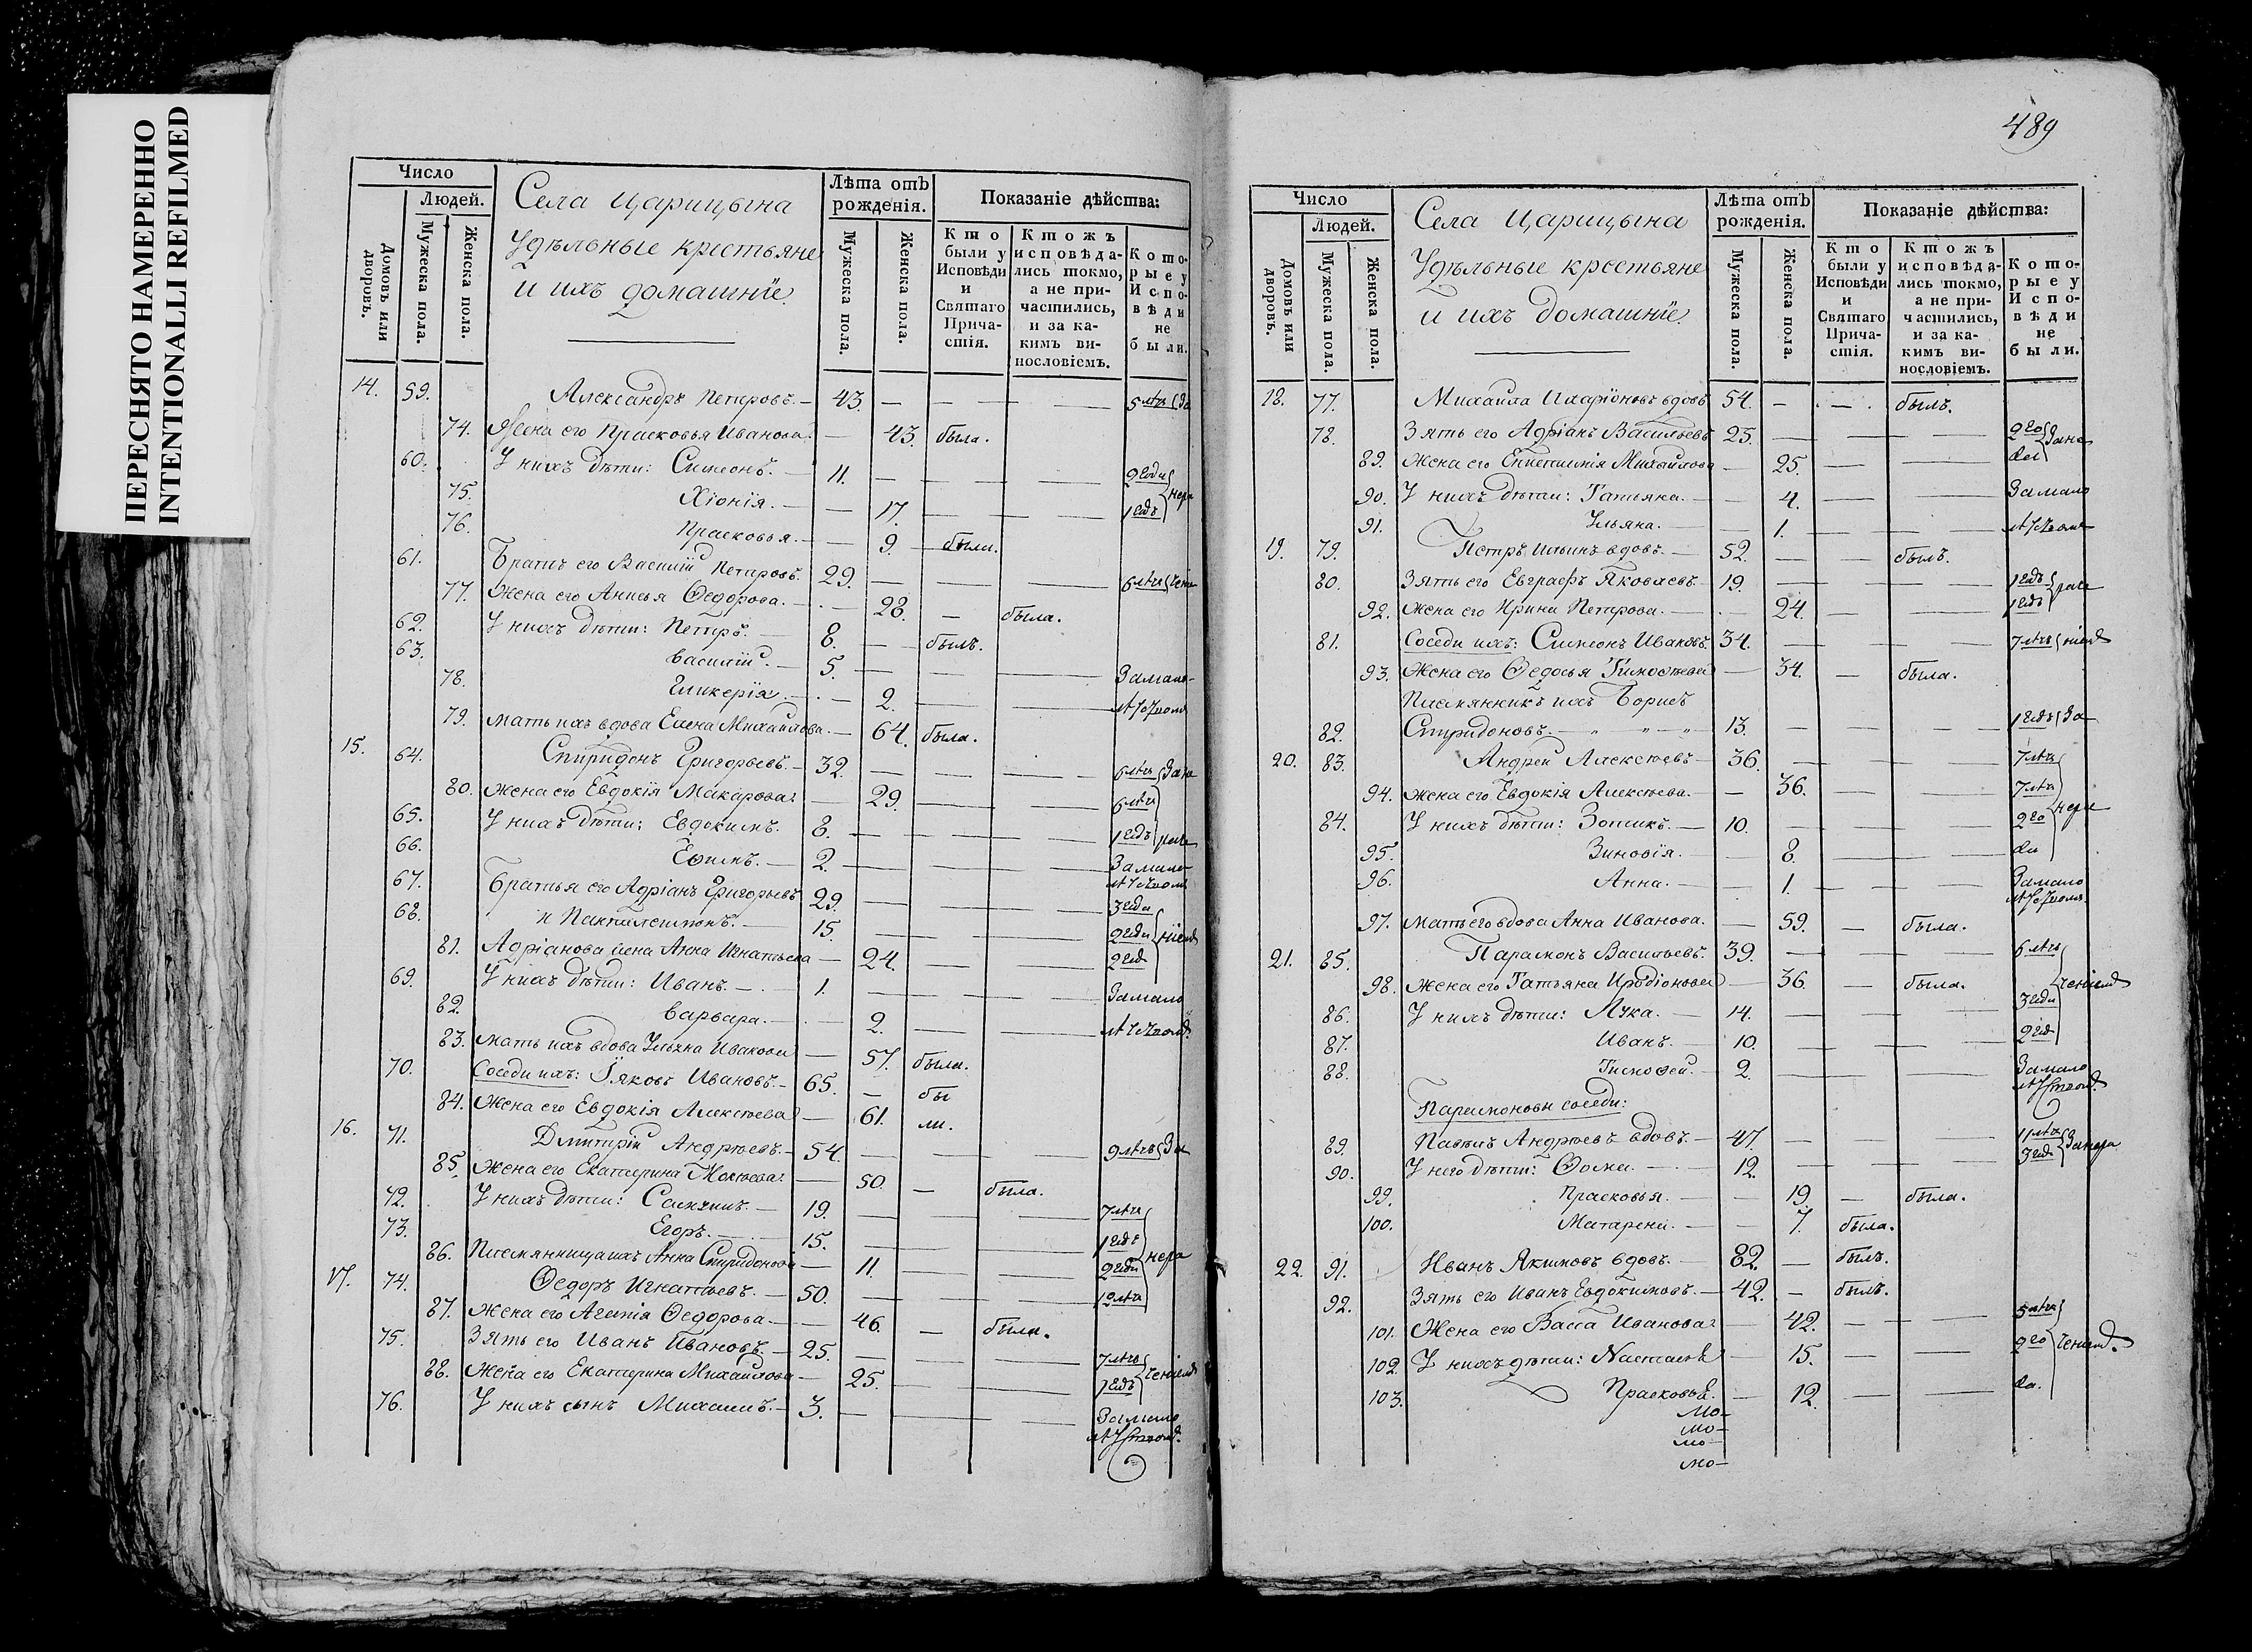 ПЕРЕСНЯТО НАМЕРЕННО
INTENTIONALLI REFILMED
Число
Людей.
Домовъ или дворовъ.
Мужеска пола.
Женска пола.
Села Царицына
Удѣльные крестьяне
и ихъ домашнїе.
Лѣта отъ рожденія.
Мужеска пола.
Женска пола.
Показаніе дѣйства:
Кто были у Исповѣди и Святаго Причастія.
Ктожъ исповѣдались токмо, а не причастились, и за какимъ винословіемъ.
Которые у Исповѣди не были.
14. 59. Александръ Петровъ. — 43. — — — 5 лѣтъ За
74. Жена его Прасковья Иванова. — 43. была.
60. У нихъ дѣти: Симеонъ. — 11. — — — 2 годи
75. Хіонія. — — 17. — — — 1 годъ нера
76. Прасковья. — — 9. — были.
61. Братъ его Василій Петровъ. 29. — — — 6 лѣтъ
77. Жена его Анисья Ѳедорова. — 28. — была.
62. У нихъ дѣти: Петръ. — 8. — — былъ.
63. Василій. — 5. — — — Замало
78. Гликерїя. — — 2. — — —
79. мать ихъ вдова Елена Михайлова. — 64. была.
15. 64. Спиридонъ Григорьевъ. — 32. — — — 6 лѣтъ
80. Жена его Евдокія Макарова. — 29. — — — 6 лѣтъ
65. У нихъ дѣти: Евдокимъ. 8. — — — 1 годъ
66. Ефимъ. — 2. — — — Замало
67. Братья его Адріанъ Григорьевъ 29. — — — 3 годи
68. и Пантилеимонъ. — 15. — — — 2 годи
81. Адріанова жена Анна Игнатьева — 24. — — 2 год
69. У нихъ дѣти: Иванъ. — 1. — — — Замало
82. Варвара. — — 2. — — —
83. мать ихъ вдова Ульяна Иванова — 57. была.
70. Соседи ихъ: Іяковъ Ивановъ. — 65. — бы
84. Жена его Евдокія Алексѣева — 61. ли.
16. 71. Дмитрій Андрѣевъ. — 54. — — — 9 лѣтъ За
85. Жена его Екатерина — 50. — была.
72. У нихъ дѣти: — 19. — — — 7 лѣтъ
73. Егоръ. — 15. — — — 1 годъ
86. Племянница ихъ Анна Спиридонова — 11. — — — 2 годи нера
17. 74. Ѳедоръ Игнатьевъ. — 50. — — — 12 лѣтъ
87. Жена его Агапія Ѳедорова — — 46. — была.
75. Зять его Иванъ Ивановъ. — 25. — — — 7 лѣтъ
88. Жена его Екатерина Михайлова — 25. — — 1 годъ
76. У нихъ сынъ Михаилъ. — 3. — — — Замало
489
Число
Людей.
Домовъ или дворовъ.
Мужеска пола.
Женска пола.
Села Царицына
Удѣльные крестьяне
и ихъ домашнїе.
Лѣта отъ рожденія.
Мужеска пола.
Женска пола.
Показаніе дѣйства:
Кто были у Исповѣди и Святаго Причастія.
Ктожъ исповѣдались токмо, а не причастились, и за какимъ винословіемъ.
Которые у Исповѣди не были.
18. 77. Михаила Иларіоновъ вдовъ 54. — — былъ.
78. Зять его Адріанъ Васильевъ 25. — — — 2 го
89. Жена его Михайлова — 25. — — да
90. У нихъ дѣти: Татьяна. — — 4. — — Замало
91. Ульяна. — — 1. — —
19. 79. Петръ Ильинъ вдовъ. — 52. — — былъ.
80. Зять его Евграфъ Яковлевъ. 19. — — — 1 годъ
92. Жена его Ирина Петрова. — 24. — — — 1 годъ
81. Соседи ихъ: Симеонъ Ивановъ. 34. — — — 7 лѣтъ
93. Жена его Ѳедосья Тимоѳеева — 34. — была.
Племянникъ ихъ Борисъ
82. Спиридоновъ. — „ — „ — 13. — — — 1 годъ За
20. 83. Андрей Алексѣевъ — 36. — — — 7 лѣтъ
94. Жена его Евдокія Алексѣева. — 36. — — 7 лѣтъ
84. У нихъ дѣти: Зотикъ. — 10. — — — 2 го нера
95. Зиновія. — — 8. — — да
96. Анна. — — 1. — — Замало
97. Мать его вдова Анна Иванова. — 59. — была.
21. 85. Парамонъ Васильевъ. 39. — — — 6 лѣтъ
98. Жена его Татьяна Иродіонова — 36. — была.
86. У нихъ дѣти: Лука. — 14. — — — 3 годи
87. Иванъ. — 10. — — — 2 год
88. Тимоѳей. — 2. — — — Замало
Парамоновы соседи:
89. Павелъ Андрѣевъ вдовъ. — 47. — — — 11 лѣтъ
90. У него дѣти: Ѳома. — 12. — — — 3 год
99. Прасковья. — — 19. — была.
100. Матарена. — — 7. была.
22. 91. Иванъ Якимовъ вдовъ. — 82. — былъ.
92. Зять его Иванъ Евдокимовъ. — 42. — былъ.
101. Жена его Васса Иванова. — 42. — — 5 лѣтъ
102. У нихъ дѣти: — 15. — — 2 го
103. Прасковья. — 12. — — да.
мо—
мо—
мо—
мо—